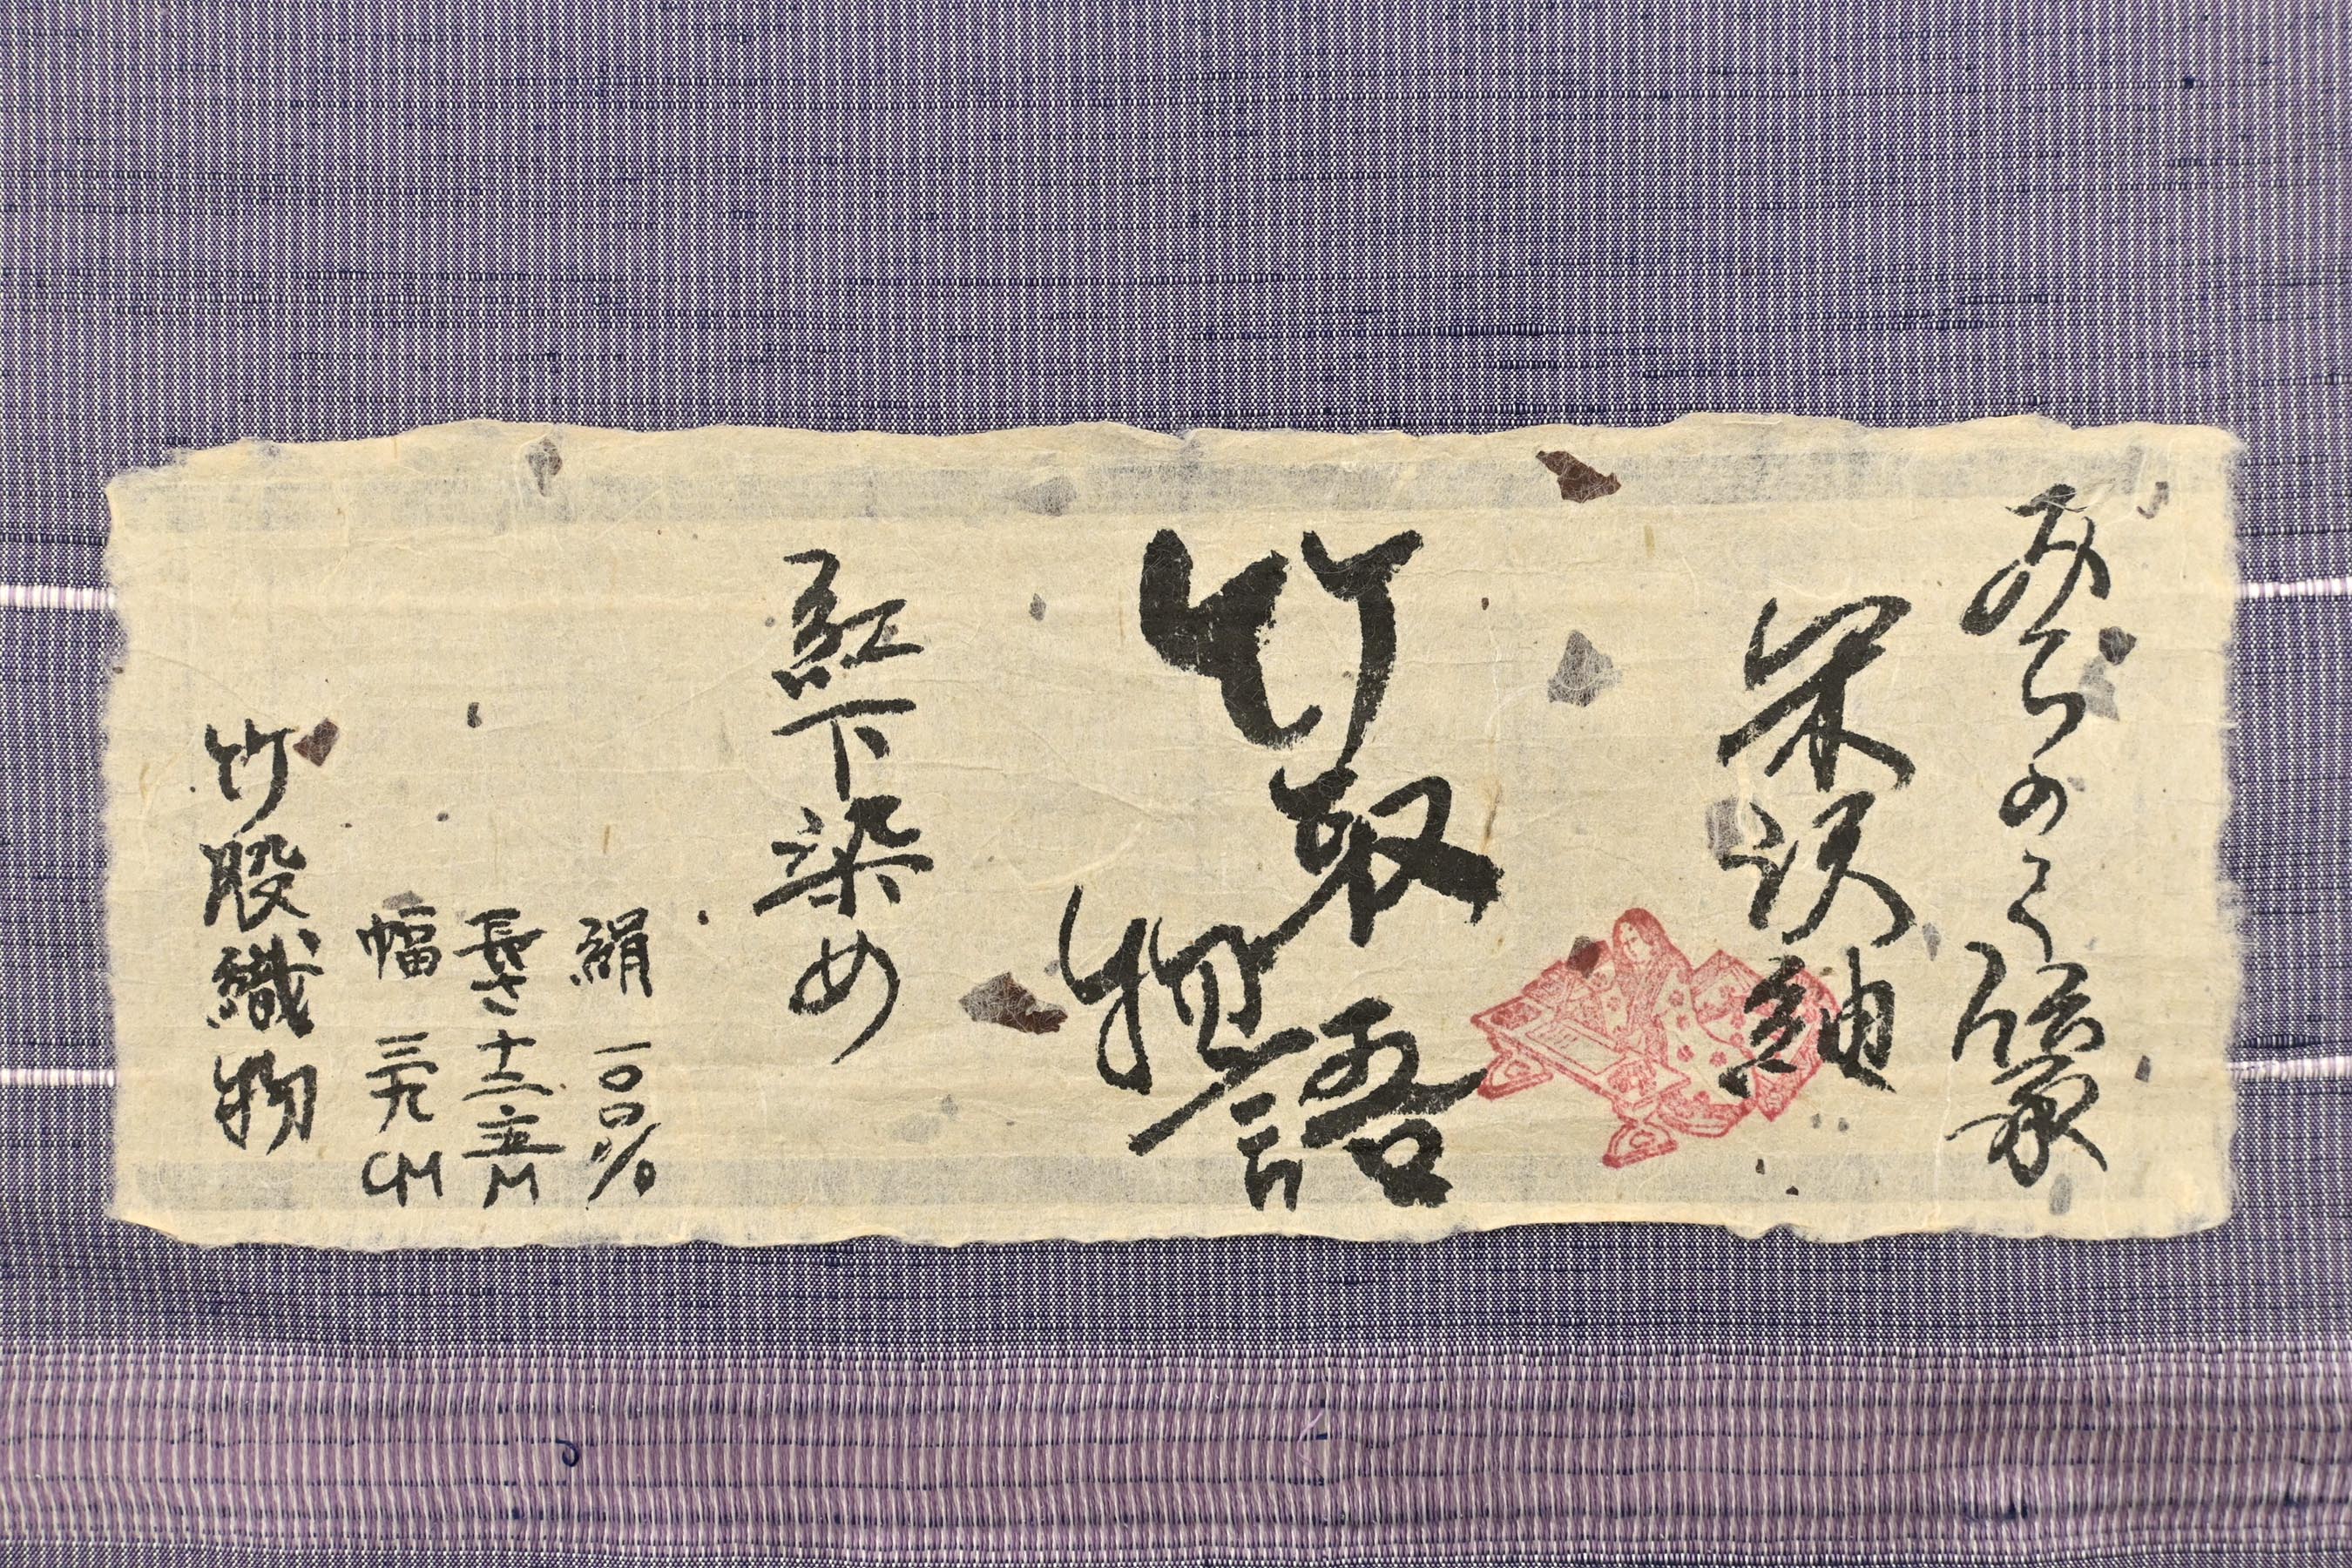 みちのく伝承
米沢紬
竹取物語
紅下染め
絹 一〇〇%
長さ十二、五M
幅 三九CM
竹股織物